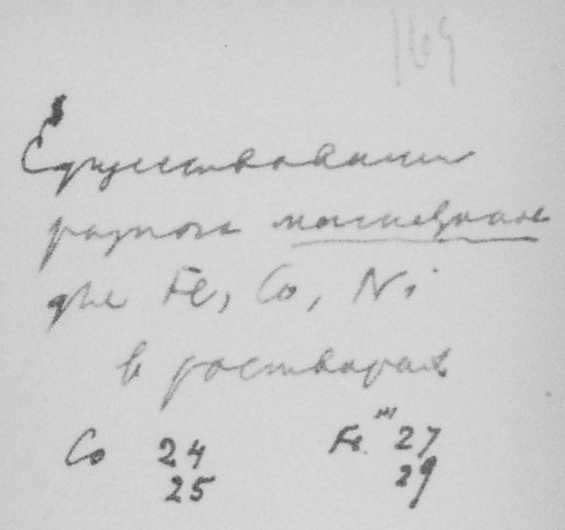 169
Существовании
разного магнетизма
для Fe, Co, Ni
в растворах
Co 24 Fe''' 27
25 29